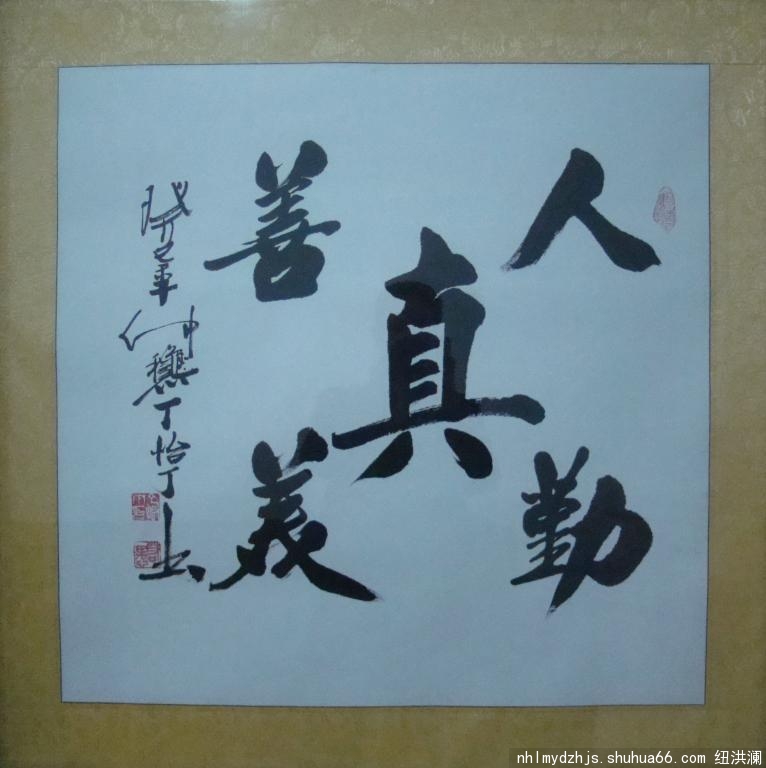 人勤
真
善美
丁怡丁
nhlmydzhjs.shuhua66.com 纽洪澜